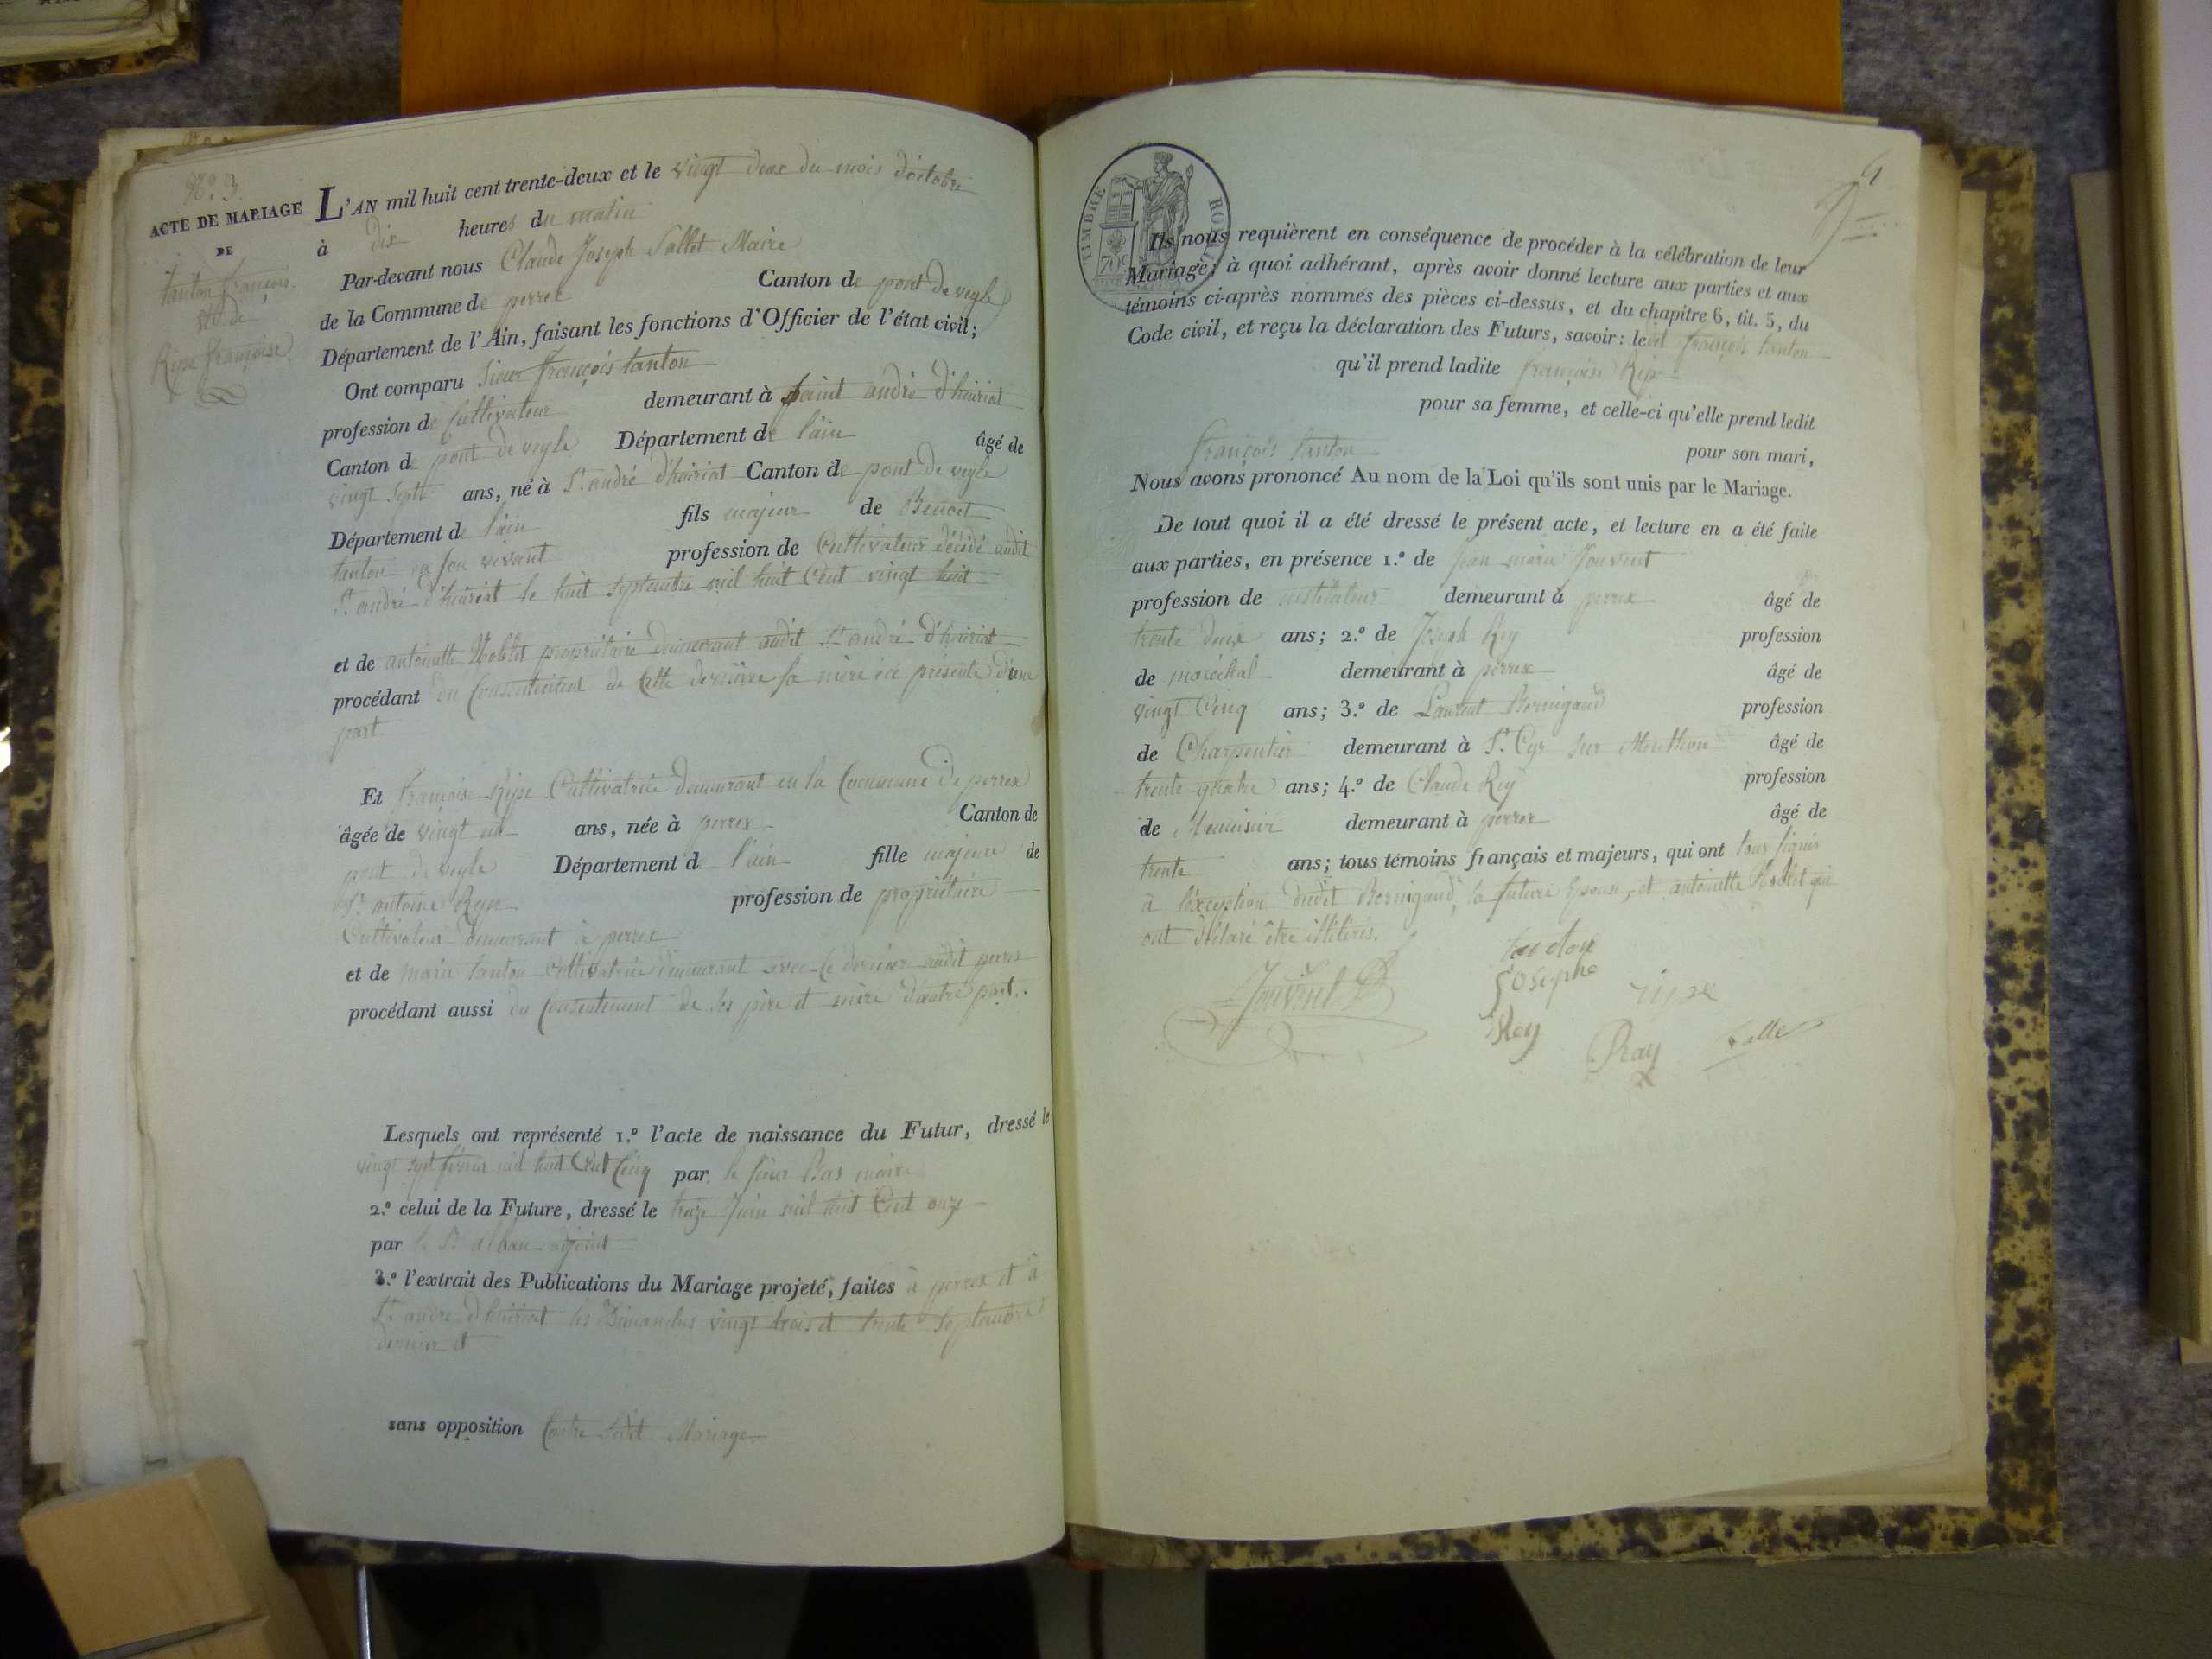 N.o 3.
ACTE DE MARIAGE
DE
tanton françois.
et de
Ripe françoise.
L'AN mil huit cent trente-deux et le vingt deux du mois d'octobre
à dix heures du matin
Par-devant nous Claude Joseph Sallet Maire
de la Commune de perrex Canton de pont de veyle
Département de l'Ain, faisant les fonctions d'Officier de l'état civil;
Ont comparu Sieur françois tanton
profession de Cultivateur demeurant à saint andré d'huiriat
Canton de pont de veyle Département de l'ain âgé de
vingt sept ans, né à St. andré d'huiriat Canton de pont de veyle
Département de l'ain fils majeur de Benoit
tanton en son vivant profession de Cultivateur décédé audit
St. andré d'huiriat le huit septembre mil huit Cent vingt huit
et de antoinette Noblet propriétaire demeurant audit St. andré d'huiriat
procédant du Consentement de Cette dernière sa mère ici présente d'une
part
Et françoise Ripe Cultivatrice demeurant en la Commune de perrex
âgée de vingt un ans, née à perrex Canton de
pont de veyle Département de l'ain fille majeure de
Sr. antoine Ripe profession de propriétaire
Cultivateur demeurant à perrex
et de marie tanton Cultivatrice demeurant avec Ce dernier audit perrex
procédant aussi du Consentement de ses père et mère d'autre part.
Lesquels ont représenté 1.o l'acte de naissance du Futur, dressé le
vingt sept février mil huit Cent Cinq par le sieur Bas maire
2.o celui de la Future, dressé le treize Juin mil huit Cent onze
par le Sr. alban adjoint
3.o l'extrait des Publications du Mariage projeté, faites à perrex et à
St. andré d'huiriat les Dimanches vingt trois et trente Septembre
dernier et
sans opposition Contre ledit Mariage
TIMBRE ROYAL
70c
9
Ils nous requièrent en conséquence de procéder à la célébration de leur
Mariage; à quoi adhérant, après avoir donné lecture aux parties et aux
témoins ci-après nommés des pièces ci-dessus, et du chapitre 6, tit. 5, du
Code civil, et reçu la déclaration des Futurs, savoir: ledit françois tanton
qu'il prend ladite françoise Ripe
pour sa femme, et celle-ci qu'elle prend ledit
françois tanton pour son mari,
Nous avons prononcé Au nom de la Loi qu'ils sont unis par le Mariage.
De tout quoi il a été dressé le présent acte, et lecture en a été faite
aux parties, en présence 1.o de Jean marie Jouvent
profession de instituteur demeurant à perrex âgé de
trente deux ans; 2.o de Joseph Rey profession
de maréchal demeurant à perrex âgé de
vingt Cinq ans; 3.o de Laurent Bernigaud profession
de Charpentier demeurant à St. Cyr sur Menthon âgé de
trente quatre ans; 4.o de Claude Rey profession
de Menuisier demeurant à perrex âgé de
trente ans; tous témoins français et majeurs, qui ont tous signé
à l'exception dudit Bernigaud, la future Epouse, et antoinette Noblet qui
ont déclaré être illitérés.
tanton
Jouvent
Josephe ripe
Rey Ray Sallet